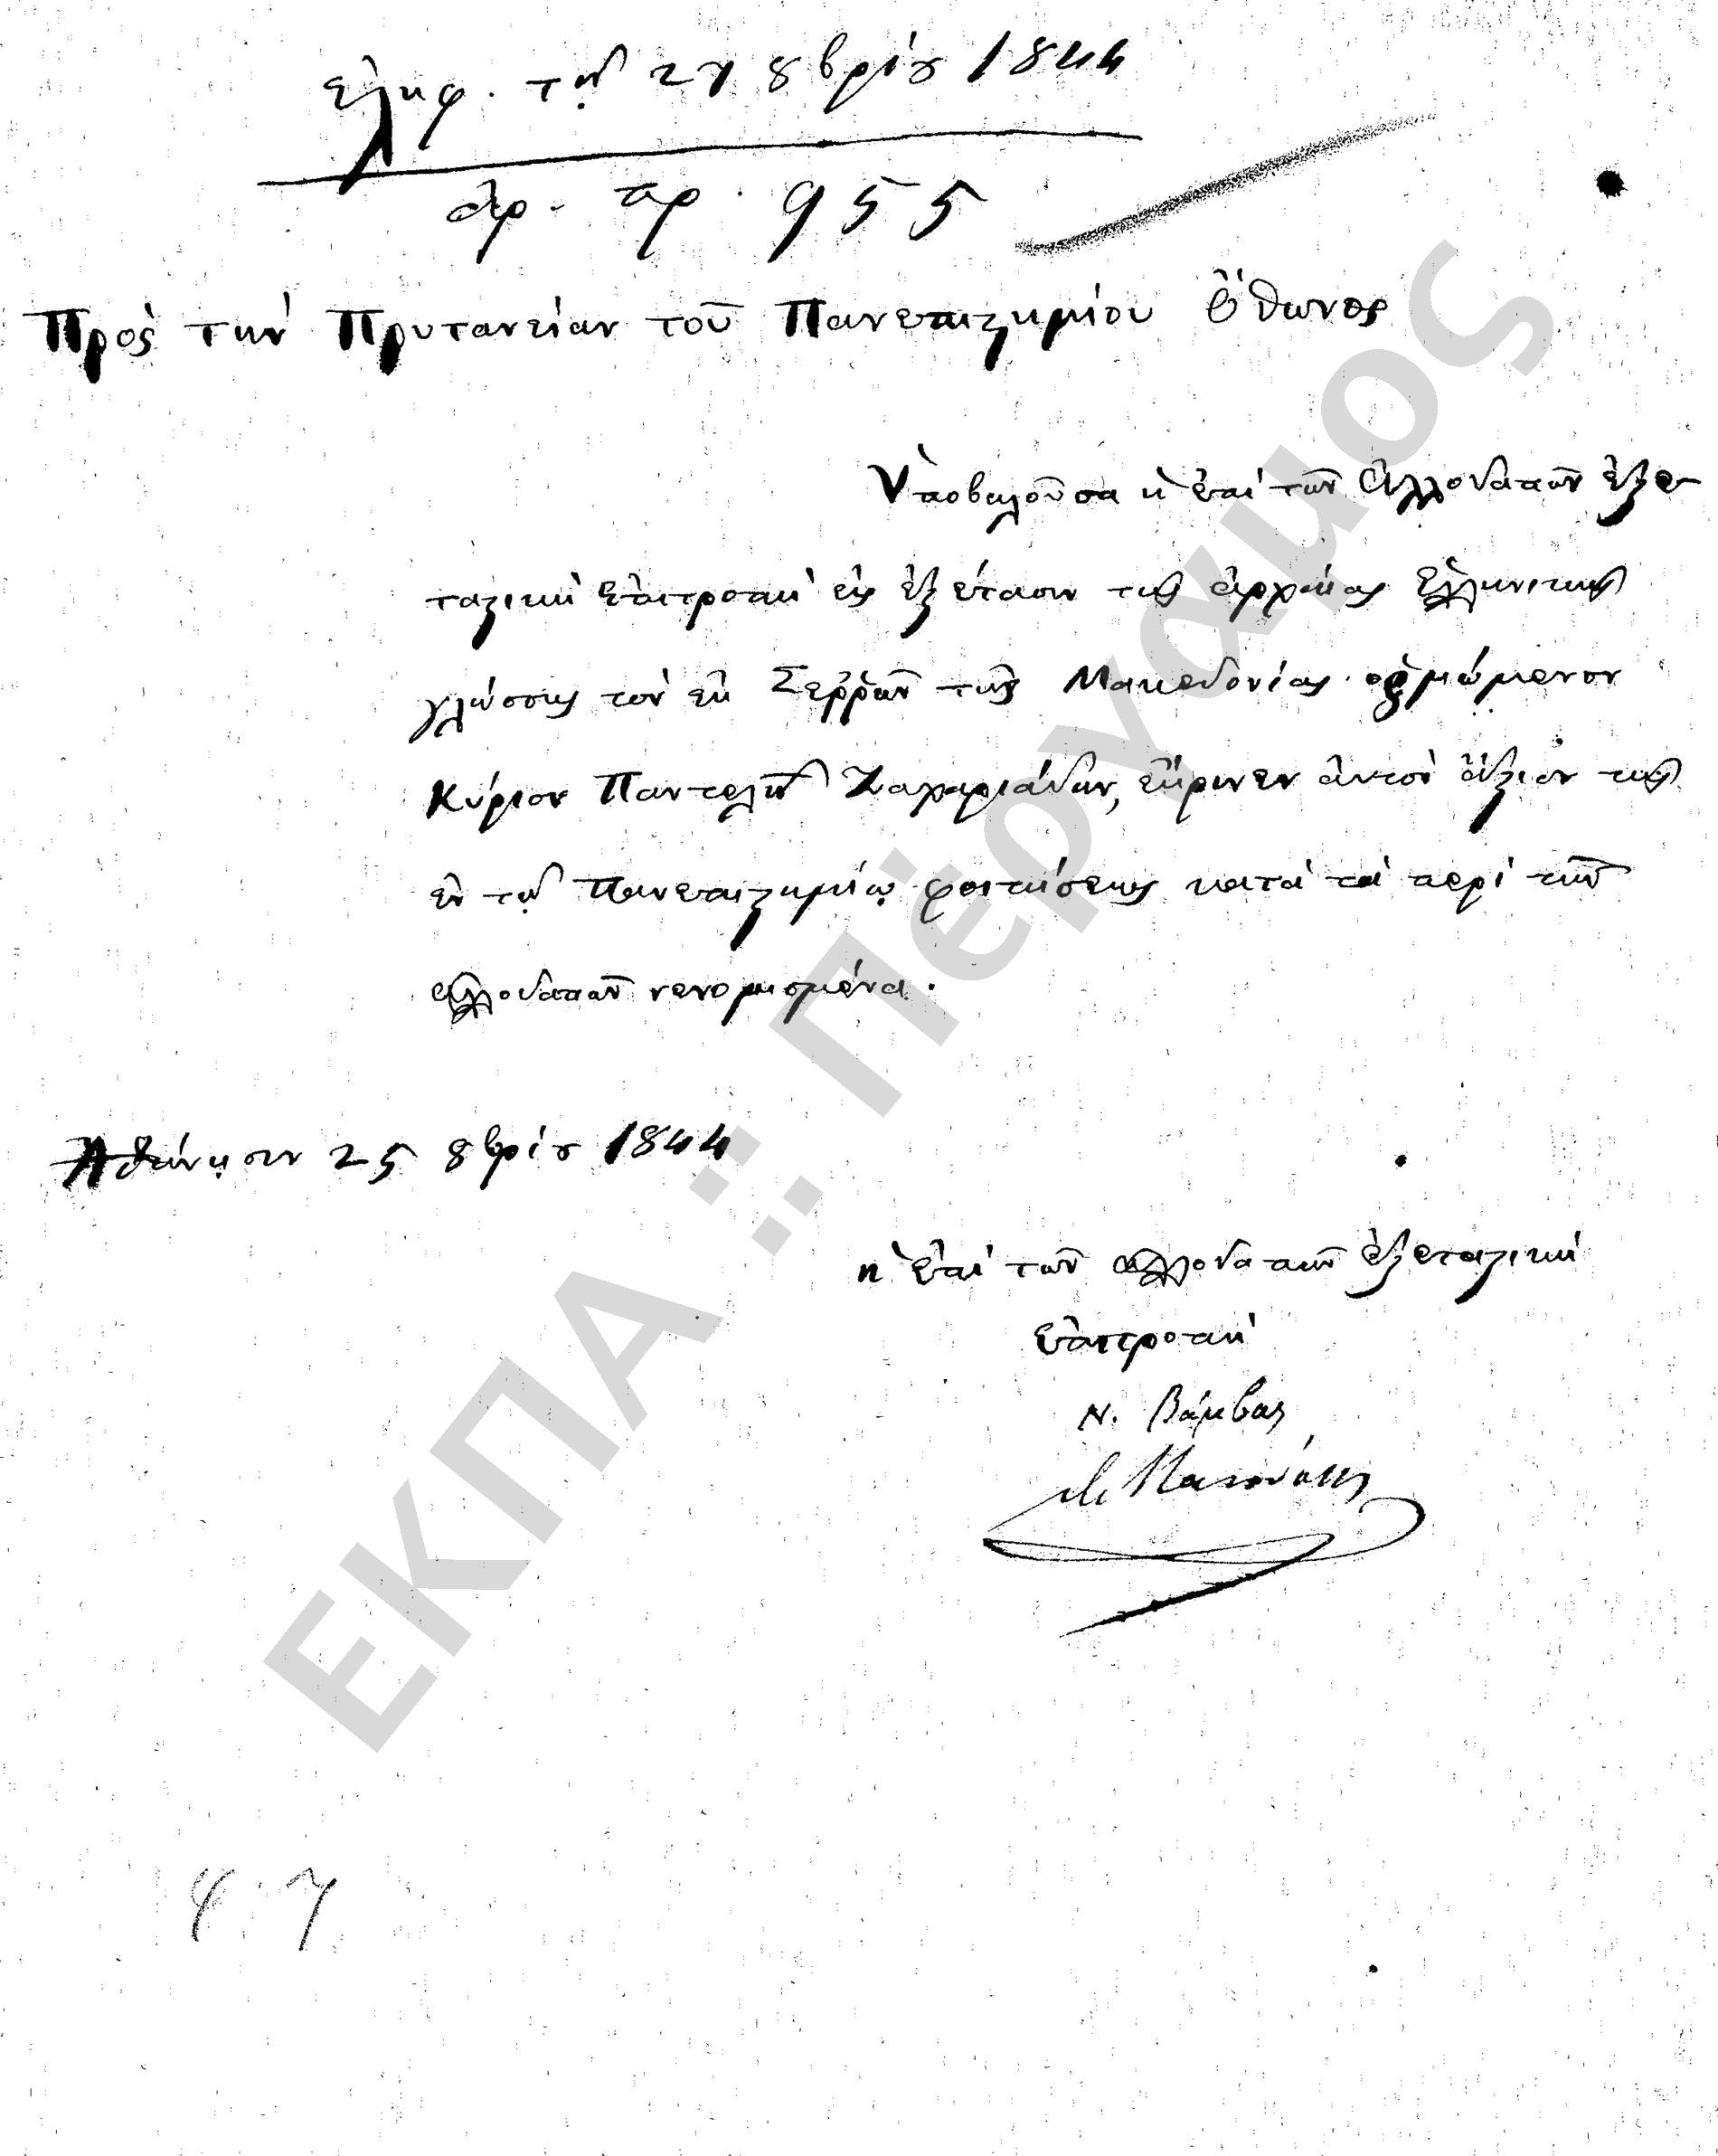 ἐλήφ. τῇ 27 8βρίου 1844
ἀρ. πρ. 955
Πρὸς τὴν Πρυτανείαν τοῦ Πανεπιστημίου Ὄθωνος
Ὑποβαλοῦσα ἡ ἐπὶ τῶν ἀλλοδαπῶν ἐξε-
ταστικὴ ἐπιτροπὴ εἰς ἐξέτασιν τῆς ἀρχαίας Ἑλληνικῆς
γλώσσης τὸν ἐκ Σεῤῥῶν τῆς Μακεδονίας ὁρμώμενον
Κύριον Παντελῆν Ζαχαριάδην, εὕρινεν αὐτὸν ἄξιον τῆς
ἐν τῷ Πανεπιστημίῳ φοιτήσεως κατὰ τὰ περὶ τῶν
ἀλλοδαπῶν νενομισμένα.
Ἀθήνησιν 25 8βρίου 1844
ἡ ἐπὶ τῶν ἀλλοδαπῶν ἐξεταστικὴ
ἐπιτροπὴ
Ν. Βάμβας
ΕΚΠΑ :: Πέργαμος